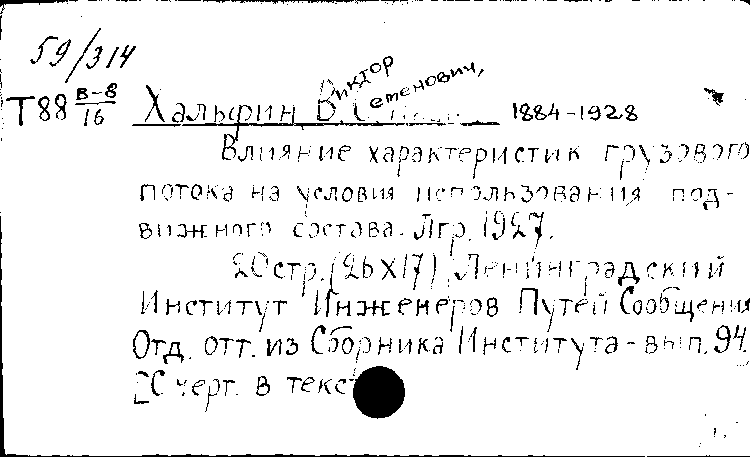 59/314
Т88 В-8/16 Хальфин, Виктор Семенович, 1884-1928
Влияние характеристик грузового
потока на условия использования под-
вижного состава. Лгр. 1927.
20 стр. (26X17) Ленинградский
Институт Инженеров Путей Сообщения
Отд. отт. из Сборника Института - вып. 94.
[С черт. в текс